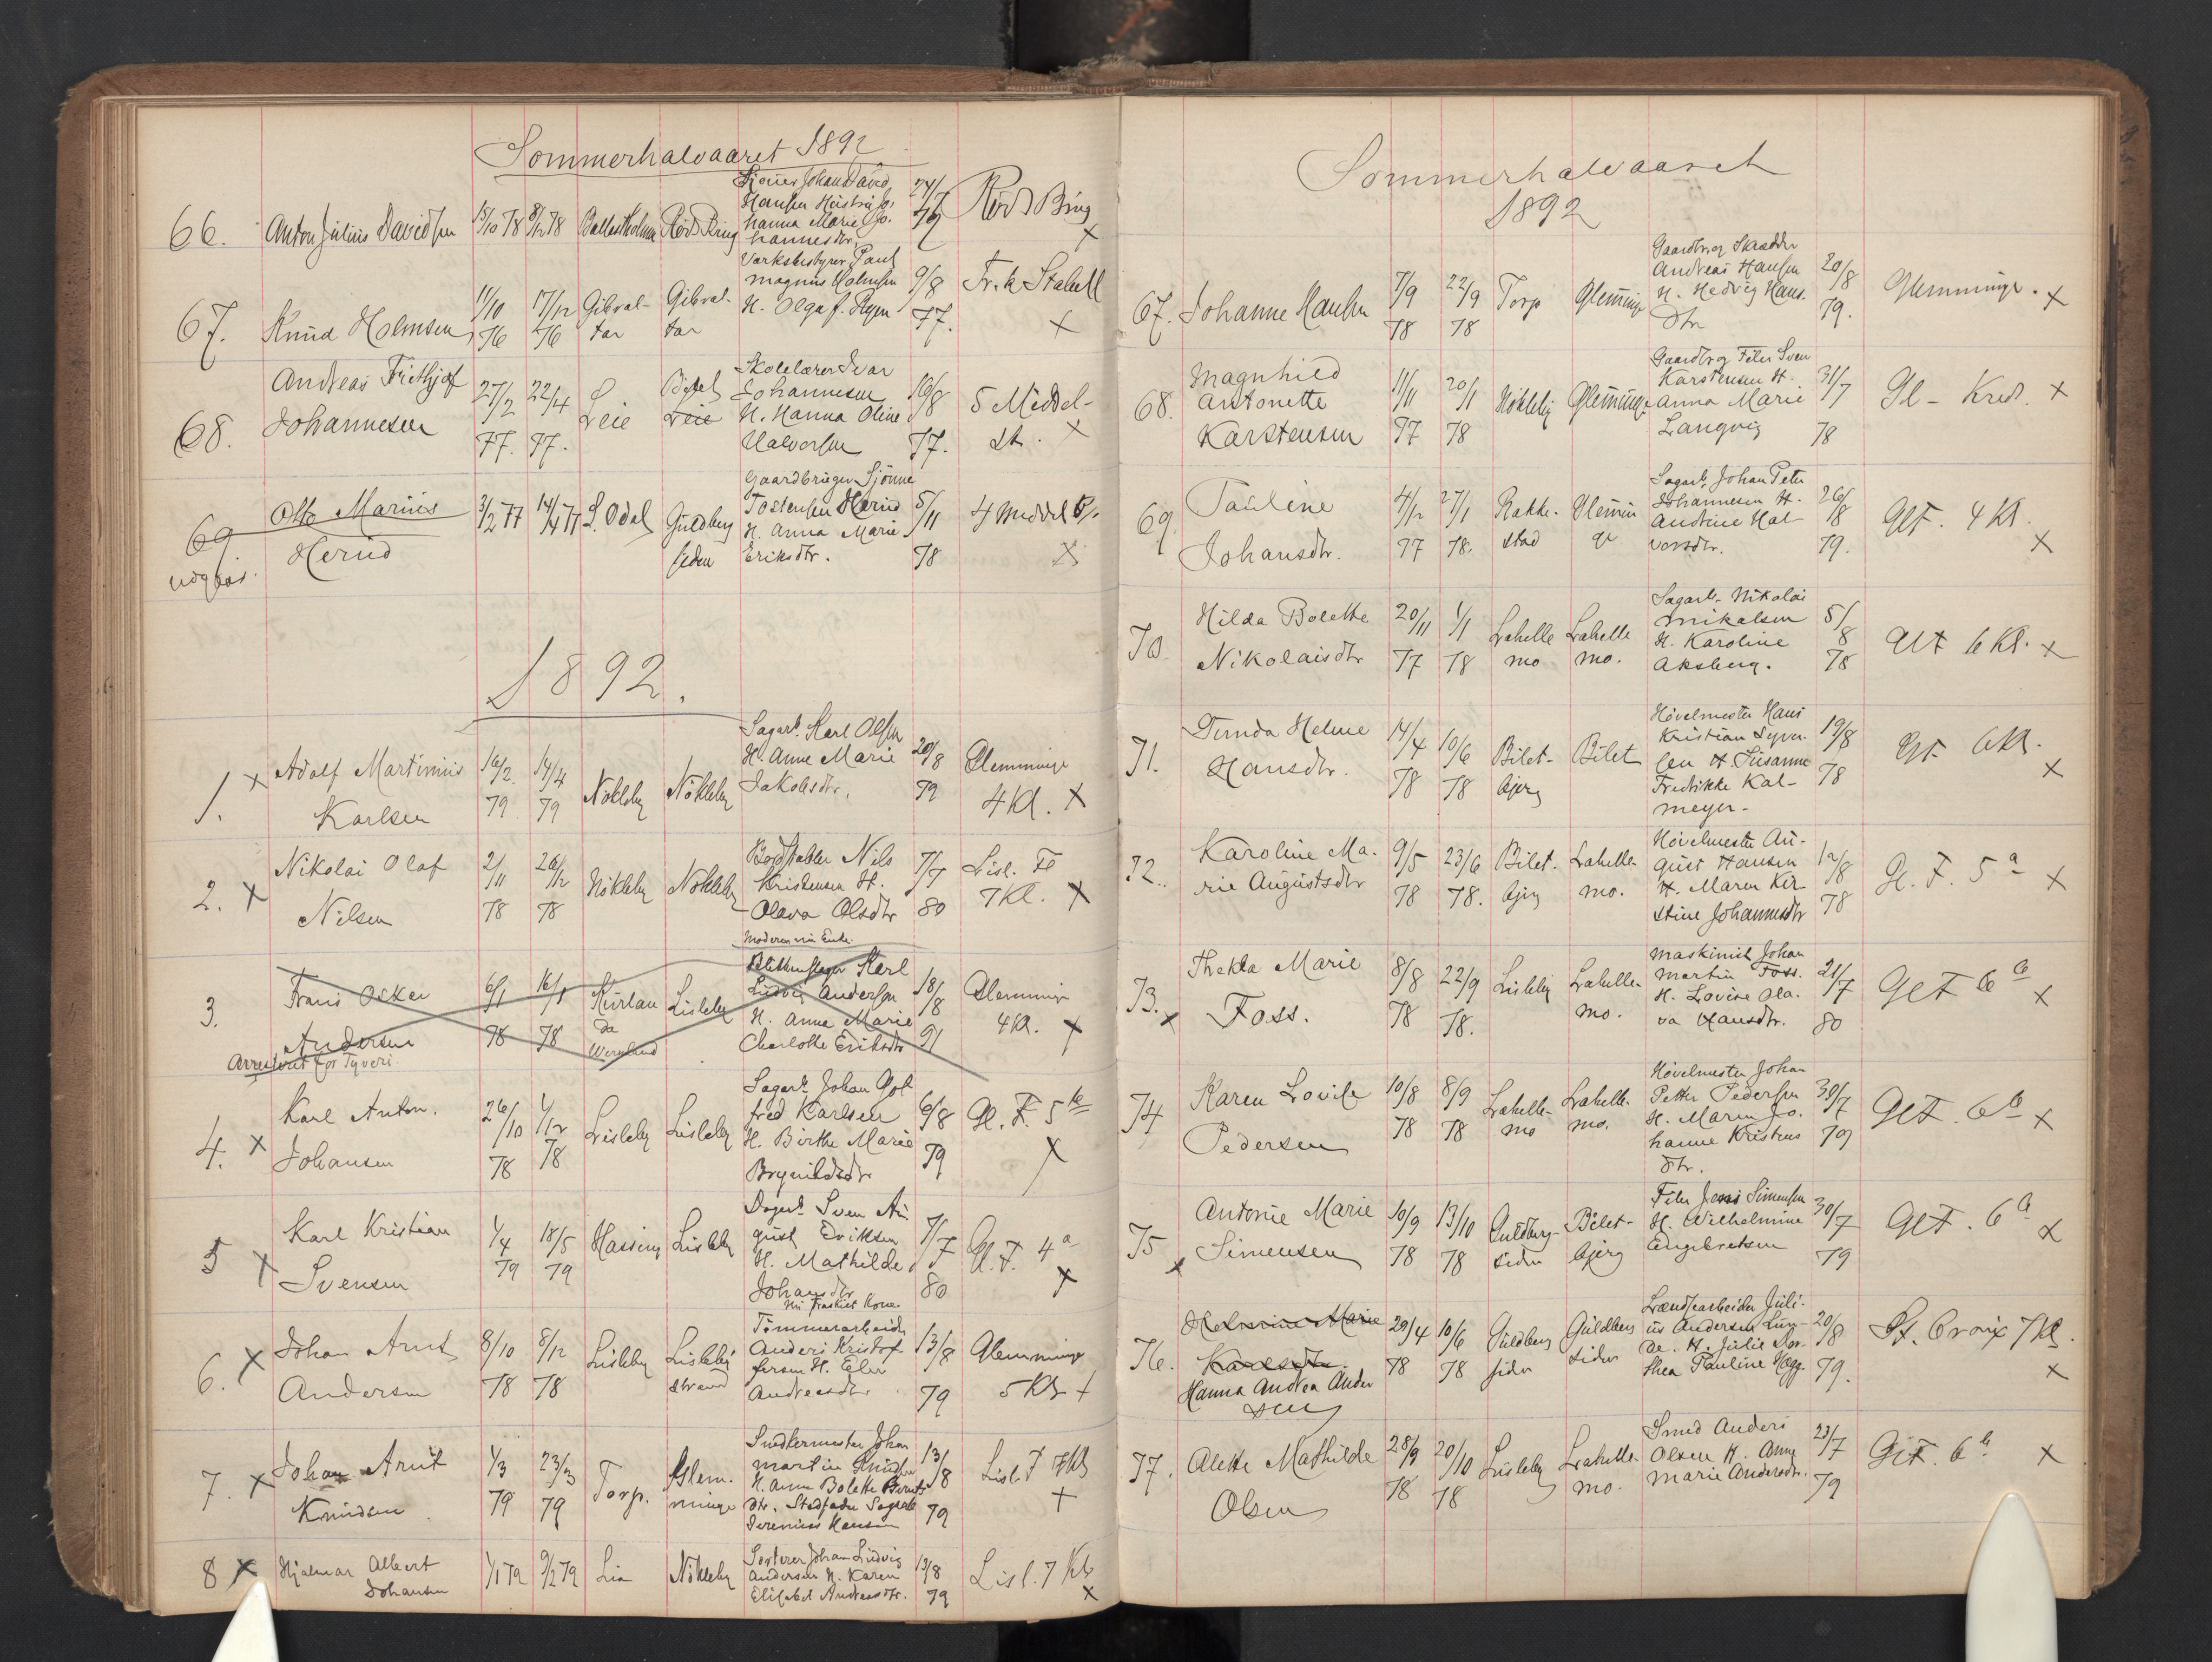 Sommerhalvaaret 1892
66. Anton Julius Davidsen 15/10 78 8/12 78 Rød Bring Johan David Hansen Hustru Johanna Marie Johannesdtr. 24/7 Rød Bring x
67. Knud Holmsen 11/10 76 17/12 76 Gibraltar Gibraltar Værksbestyrer Paul Magnus Holmsen H. Olga f. 9/8 77. Fr.k Stabell x
68. Andreas Frithjof Johannesen 27/2 77. 22/4 77. Leie Leie Skolelærer Ivar Johannesen H. Hanna Oline Halvorsen 16/8 77. 5 Middelst. x
69. Otto Marius Herud 3/2 77 14/4 77 S. Odal Guldbergsiden Gaardbruger Sjønne Tostensen Herud H. Anna Marie Eriksdtr. 5/11 78 4 Middel x
1892.
1. x Adolf Martinius Karlsen 16/2 79 14/4 79 Nökleby Nökleby Sagarb. Karl Olsen H. Anne Marie Jakobsdtr. 20/8 79 Glemminge 4 Kl. x
2. x Nikolai Olaf Nilsen 2/11 78 26/12 78 Nökleby Nökleby Nils Kristensen H. Olava Olsdtr 7/7 80 Lisl. F 7 Kl. x
Moderen nu Enke.
3. Frans Oskar Andersen 6/1 78 16/1 78 Wermland Lisleby Karl Ludvig Andersen H. Anna Marie Charlotte Eriksdtr 18/8 91 Glemminge 4 Kl. x
Arresteret for Tyveri.
4. x Karl Anton. Johansen 26/10 78 1/12 78 Lisleby Lisleby Sagarb. Johan Gotfred Karlsen H. Birthe Marie Brynildsdtr 6/8 79 Gl. F. 5 b x
5 x Karl Kristian Svensen 1/4 79 18/5 79 Lisleby Dagarb. Sven August Eriksen H. Mathilde Johansdtr 7/7 80 Gl. F. 4 a x
6. x Johan Arnt Andersen 8/10 78 8/12 78 Lisleby Lisleby strand Tömmerarbeider Anders Kristoffersen H. Elen Andreasdtr 13/8 79 Glemminge 5 Kl x
7. x Johan Arnt Knudsen 1/3 79 23/3 79 Torp. Glemminge Snedkermester Johan Martin Knudsen H. Anne Bolette Berntsdtr. Stedfader Sagarb. Jeremias Hansen 13/8 79 Lisl. F 7 Kl x
8 x Hjalmar Albert Johansen 1/1 79 9/2 79 Lie Nökleby Sorterer Johan Ludvig Andersen H. Karen Elisabet Andreasdtr. 13/8 79 Lisl. 7 Kl x
Sommerhalvaaret
1892
67. Johanne Hansen 7/9 78 22/9 78 Torp Glemminge Gaardbr. og Skrædder Andreas Hansen H. Hedvig Hansdtr 20/8 79. Glemminge. x
68. Magnhild Antonette Karstensen 11/11 77 20/1 78 Nökleby Glemminge Gaardbr. og Filer Sven Karstensen H. Anna Marie Langvig 31/7 78 Gl - Kred. x
69. Pauline Johansdtr. 4/12 77 27/1 78. Rakkestad Glemminge Sagarb. Johan Peter Johannesen H. Andrine Halvorsdtr. 26/8 79. Gl F. 4 Kl. x
70. Hilda Bolette Nikolaisdtr 20/11 77 1/1 78 Lahellemo Lahellemo. Sagarb. Nikolai Mikalsen H. Karoline Aksberg. 5/8 78 Gl F 6 Kl. x
71. Helene Hansdtr. 14/4 78 10/6 78 Biletbjerg Bilet Hövelmester Hans Kristian Syversen H. Susanne Fredrikke Kalmeyer- 19/8 78 Gl F 6 Kl. x
72. Karoline Marie Augustsdtr 9/5 78 23/6 78. Biletbjerg Lahellemo. Hövelmester August Hansen H. Maren Kirstine Johannesdtr 78 Gl. F. 5 a x
73. x Thekla Marie Foss. 8/8 78 22/9 78. Lisleby Lahellemo. Maskinist Johan Martin Foss. H. Lovise Olava Hansdtr. 21/7 80 Gl F 6 b x
74 Karen Lovise Pedersen 10/8 78 8/9 78 Lahellemo Lahellemo. Hövelmester Johan Petter Pedersen H. Maren Johanne Kristensdtr. 30/7 79 Gl F. 6 b x
75 x Antonie Marie Simensen 10/9 78 13/10 78 Guldbergsiden Biletbjerg Filer Jens Simensen H. Wilhelmine Engebretsen 30/7 79 Gl F. 6 b x
76. Marie Karlsdtr. Hanna Andrea Andersen 29/4 78 10/6 78 Guldbergsiden Guldbergsiden Julius Andersen H. Julie Dorthea Pauline 20/8 79. St. Croix 7 Kl. x
77. Alette Mathilde Olsen 28/9 78 20/10 78 Lisleby Lahellemo. Smed Anders Olsen H. Anne Marie Andersdtr. 23/7 79 Gl F. 6 b x